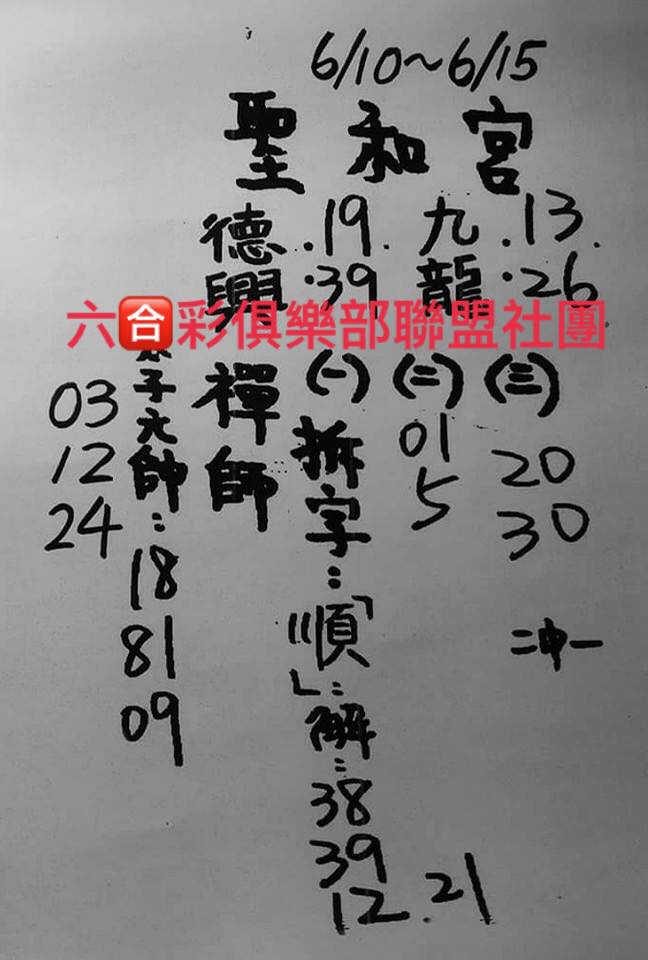 6/10~6/15
聖和宮
九龍
.13.
.26
德興禪師
.19.
.39
六合彩俱樂部聯盟社團
(三)
20
30
二中一
(二)
01
5
(一)
拆字:
「順」:
解:
38
39
12.21
太子元帥:
18
81
09
03
12
24